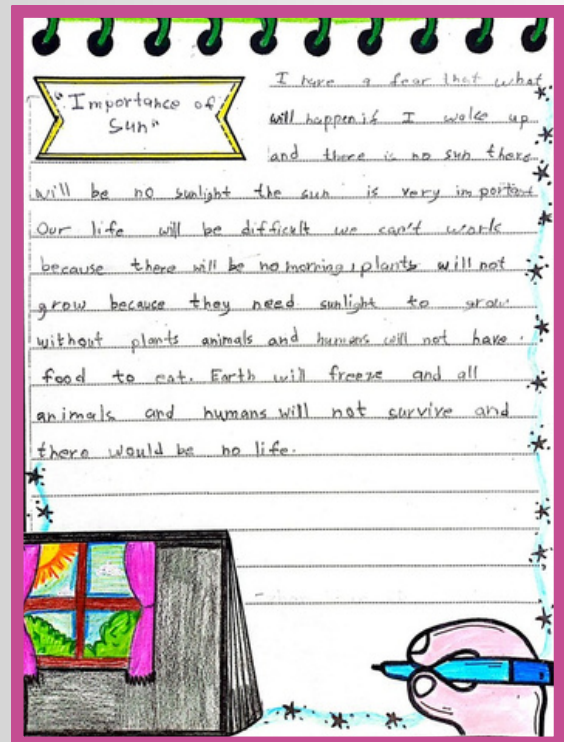 "Importance of
Sun"
I have a fear that what
will happen if I wake up
and there is no sun there
will be no sunlight the sun is very important
Our life will be difficult we can't work
because there will be no morning, plants will not
grow because they need sunlight to grow
without plants animals and humans will not have
food to eat. Earth will freeze and all
animals and humans will not survive and
there would be no life.